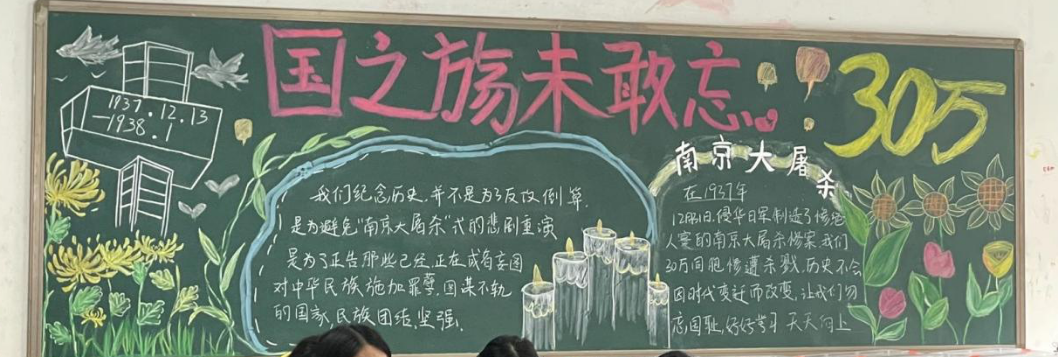 国之殇未敢忘
30万
1937.12.13
-1938.1
我们纪念历史,并不是为了反攻倒算.
是为避免"南京大屠杀"式的悲剧重演
是为了正告那些已经,正在或者妄图
对中华民族施加罪孽,图谋不轨
的国家,民族团结,坚强.
南京大屠杀
在1937年
12月13日,侵华日军制造了惨绝
人寰的南京大屠杀惨案.我们
30万同胞惨遭杀戮.历史不会
因时代变迁而改变,让我们勿
忘国耻,好好学习 天天向上